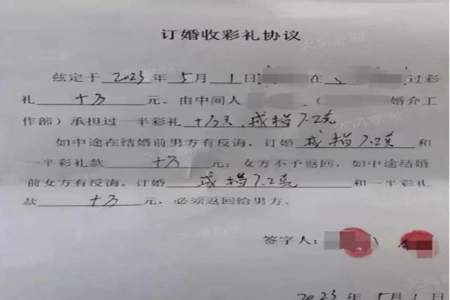 订婚收彩礼协议
兹定于 2023 年 5 月 1 日 在 过彩
礼 十万 元，由中间人 （ 婚介工
作部）承担过一半彩礼 十万元，戒指7.2克
如中途在结婚前男方有反悔，订婚 戒指7.2克 和
一半彩礼款 十万 元，女方不予返回，如中途结婚
前女方有反悔，订婚 戒指7.2克 和一半彩礼
款 十万 元，必须返回给男方。
签字人：
2023 年 5 月 1 日